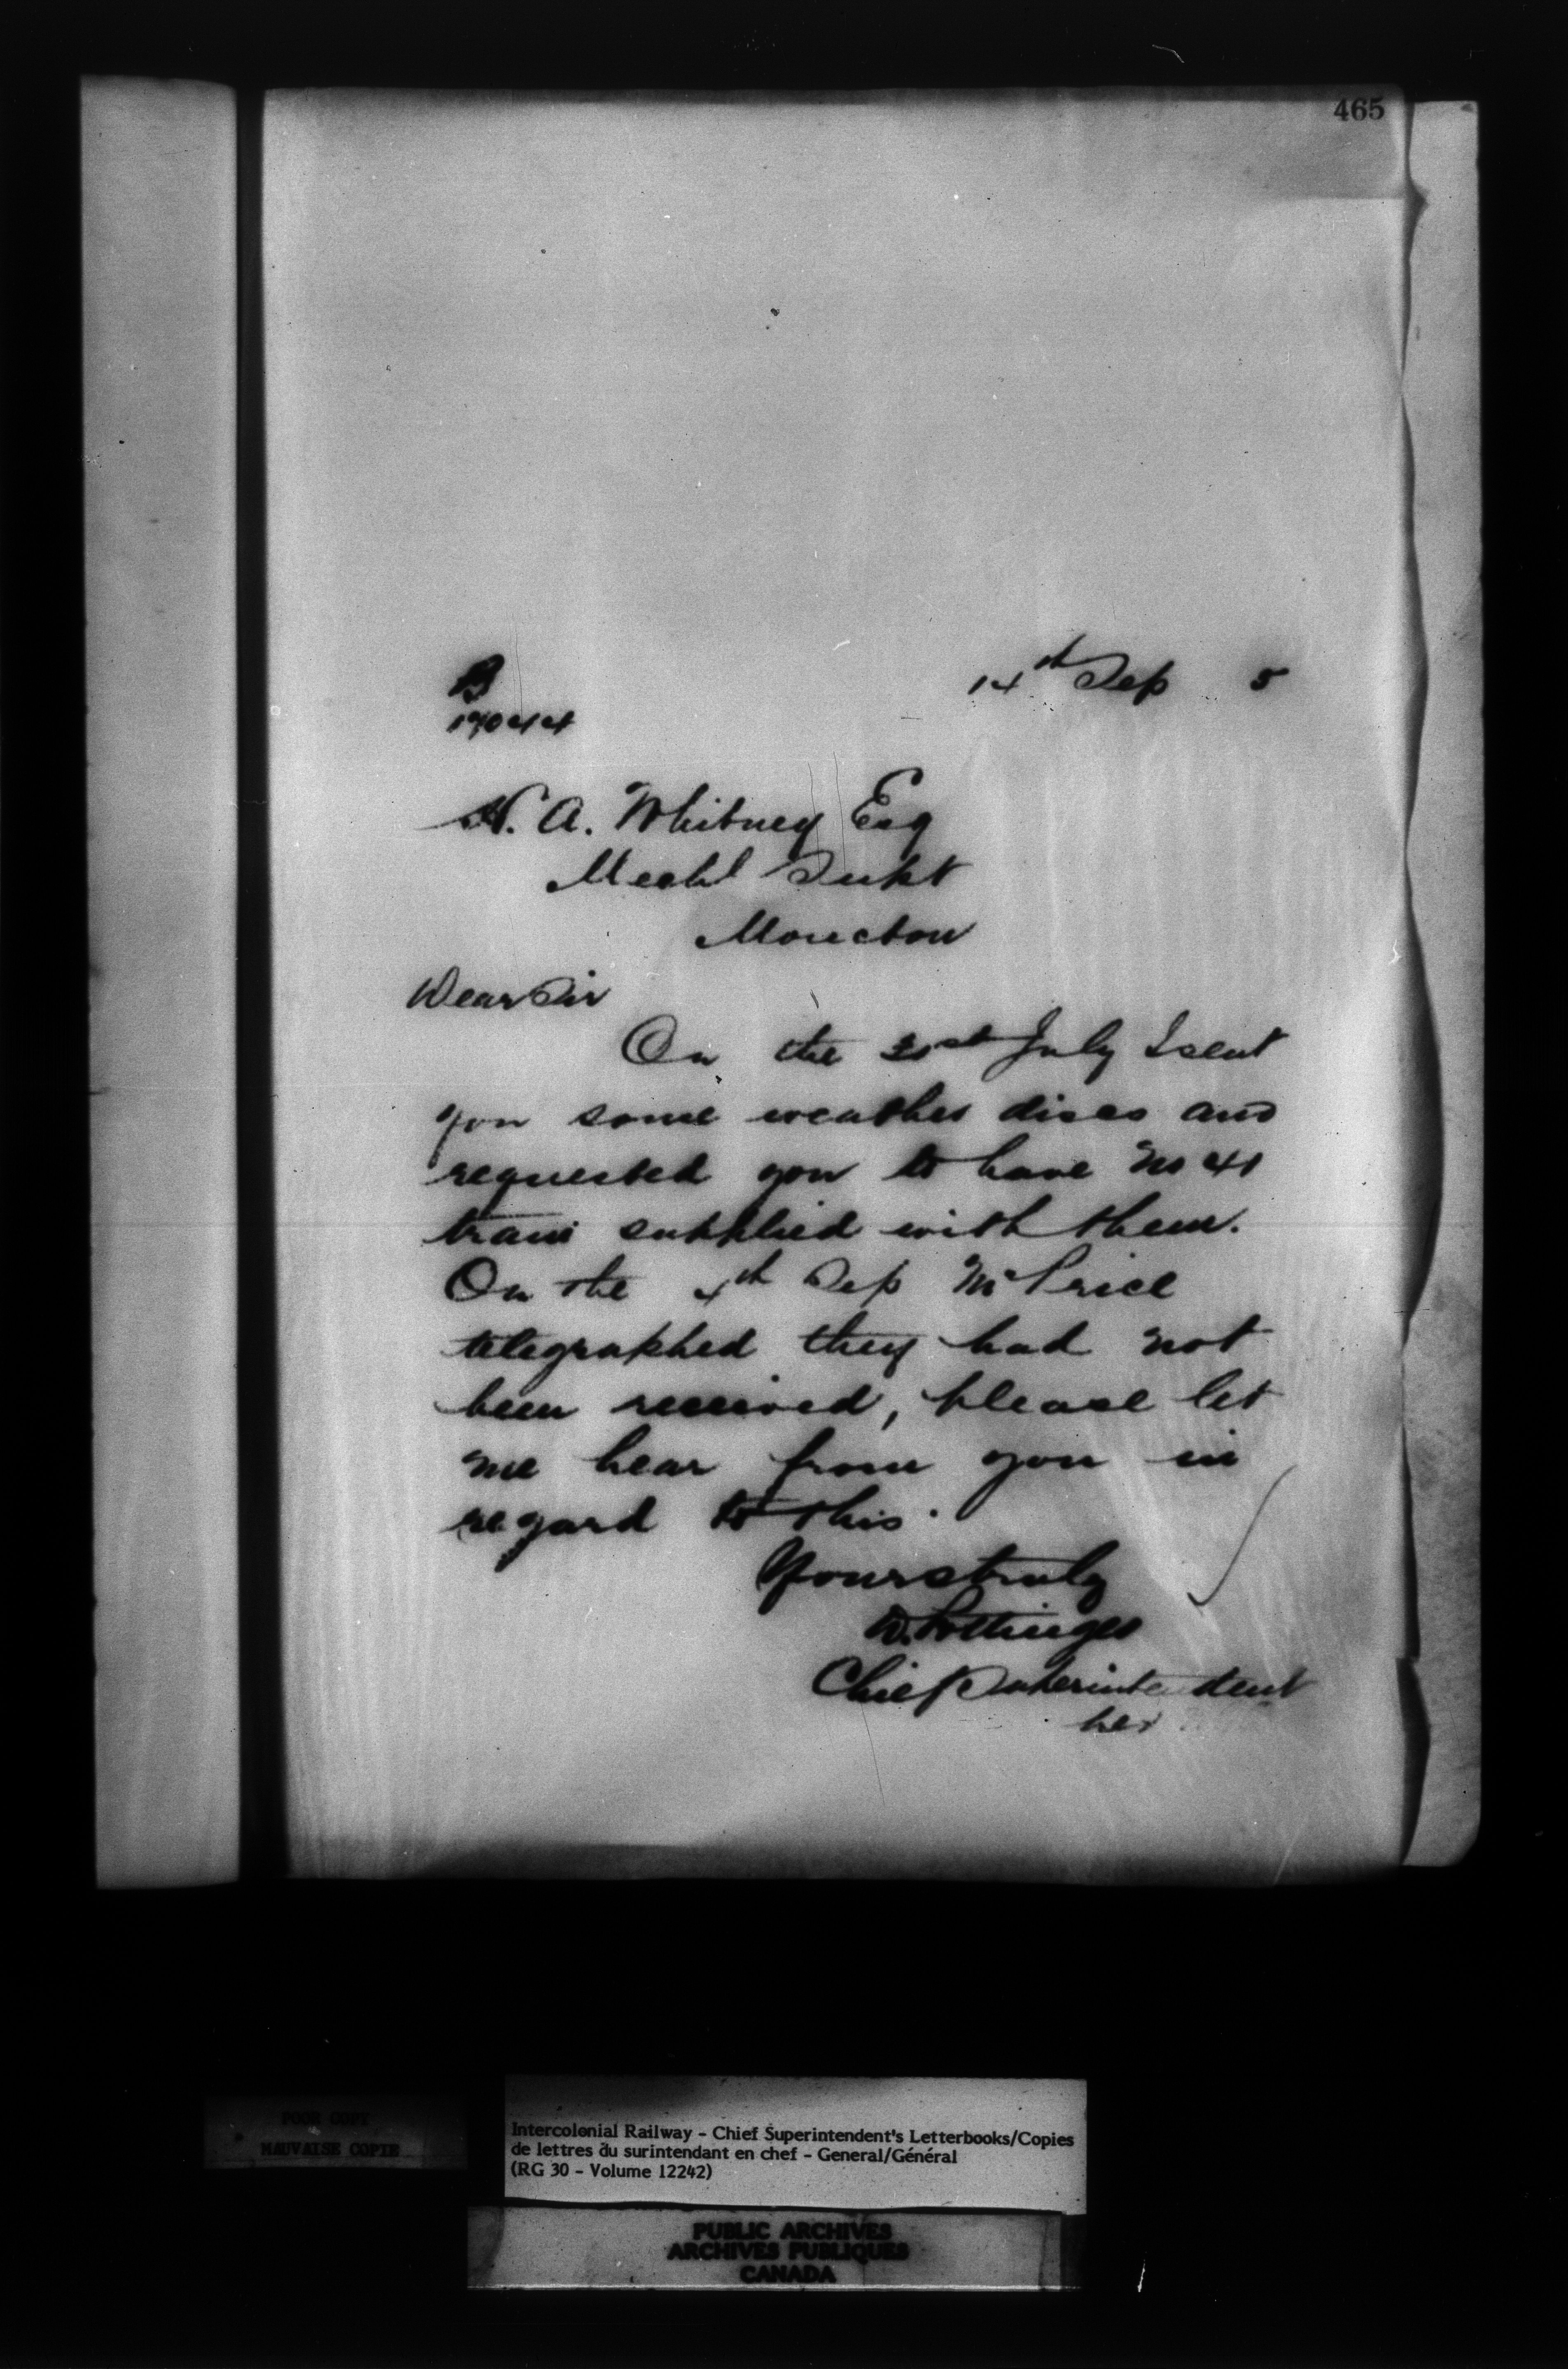 465
14th Sep 5
B
19044
H. A. Whitney Esq
Mechl Supt
Moncton
Dear Sir
On the 31st July I sent
you some weather discs and
requested you to have No 41
train supplied with them.
On the 4th Sep Mr Price
telegraphed they had not
been received, please let
me hear from you in
regard to this.
Yours truly
D. Pottinger
Chief Superintendent
POOR COPY
MAUVAISE COPIE
Intercolonial Railway - Chief Superintendent's Letterbooks/Copies
de lettres du surintendant en chef - General/Général
(RG 30 - Volume 12242)
PUBLIC ARCHIVES
ARCHIVES PUBLIQUES
CANADA